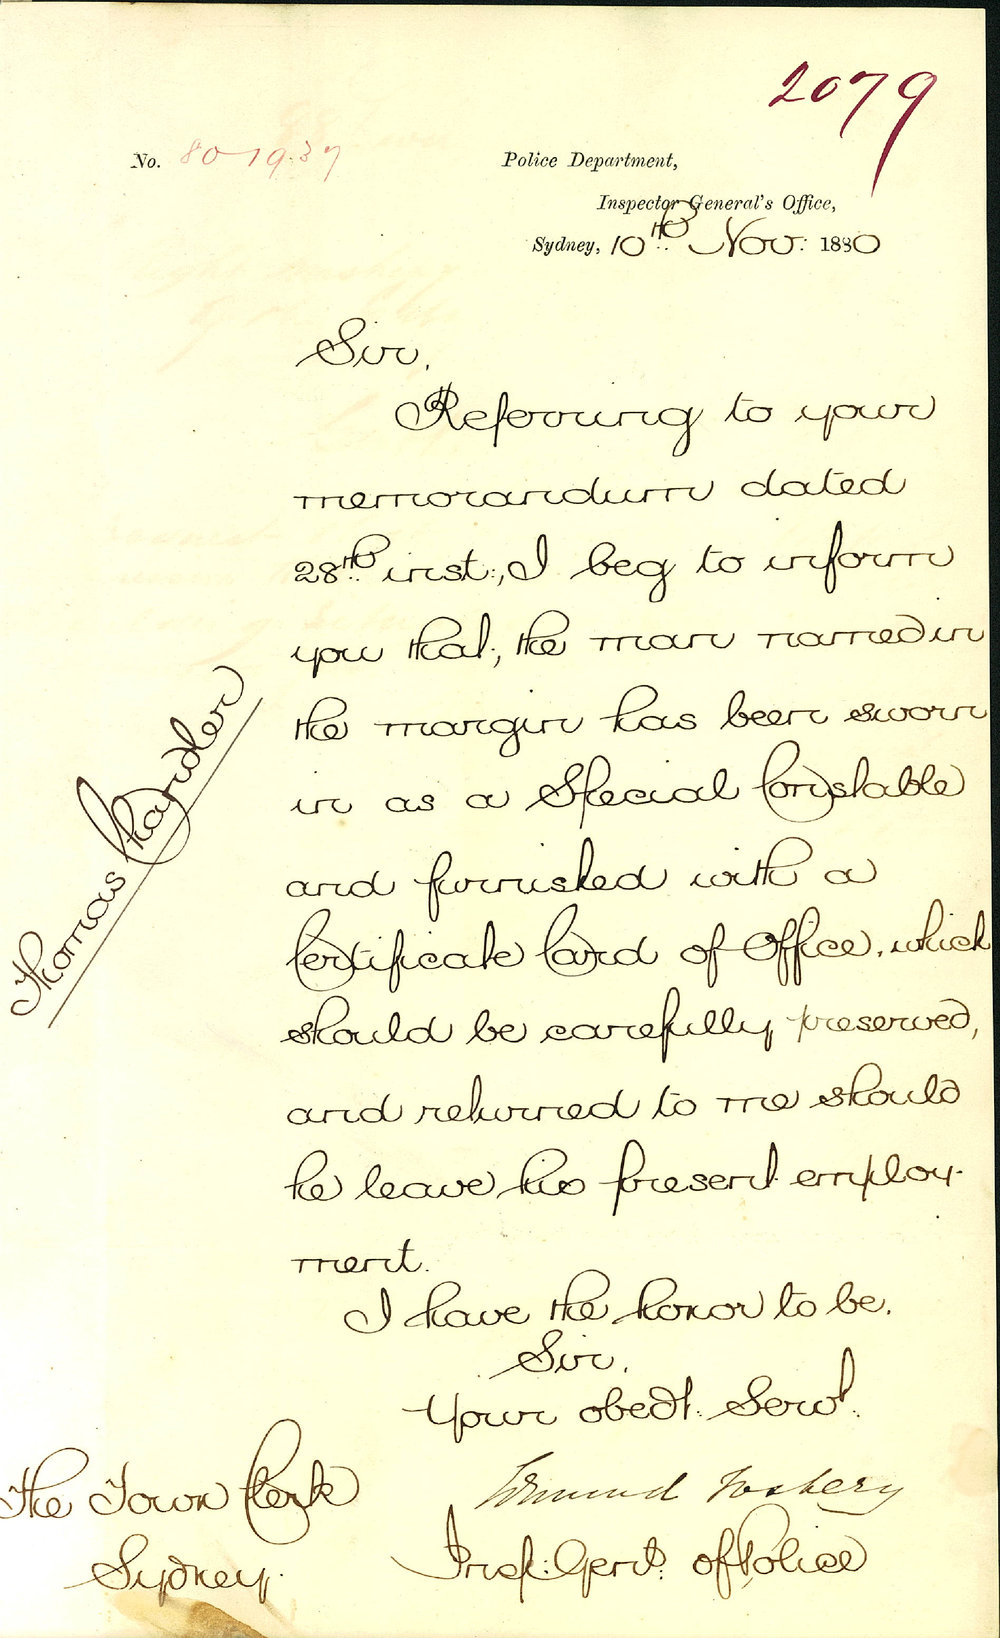 2079
No. 80-1937
Police Department,
Inspector General's Office,
Sydney, 10th Nov: 1880
Sir,
Referring to your
memorandum dated
28th inst:, I beg to inform
you that, the man named in
the margin has been sworn
in as a Special Constable
and furnished with a
Certificate Card of Office, which
should be carefully preserved,
and returned to me should
he leave his present employ-
ment.
Thomas Chandler
I have the honor to be,
Sir,
Your obedt. Servt.
Edmund Fosbery
Insp: Genl: of Police
The Town Clerk
Sydney.